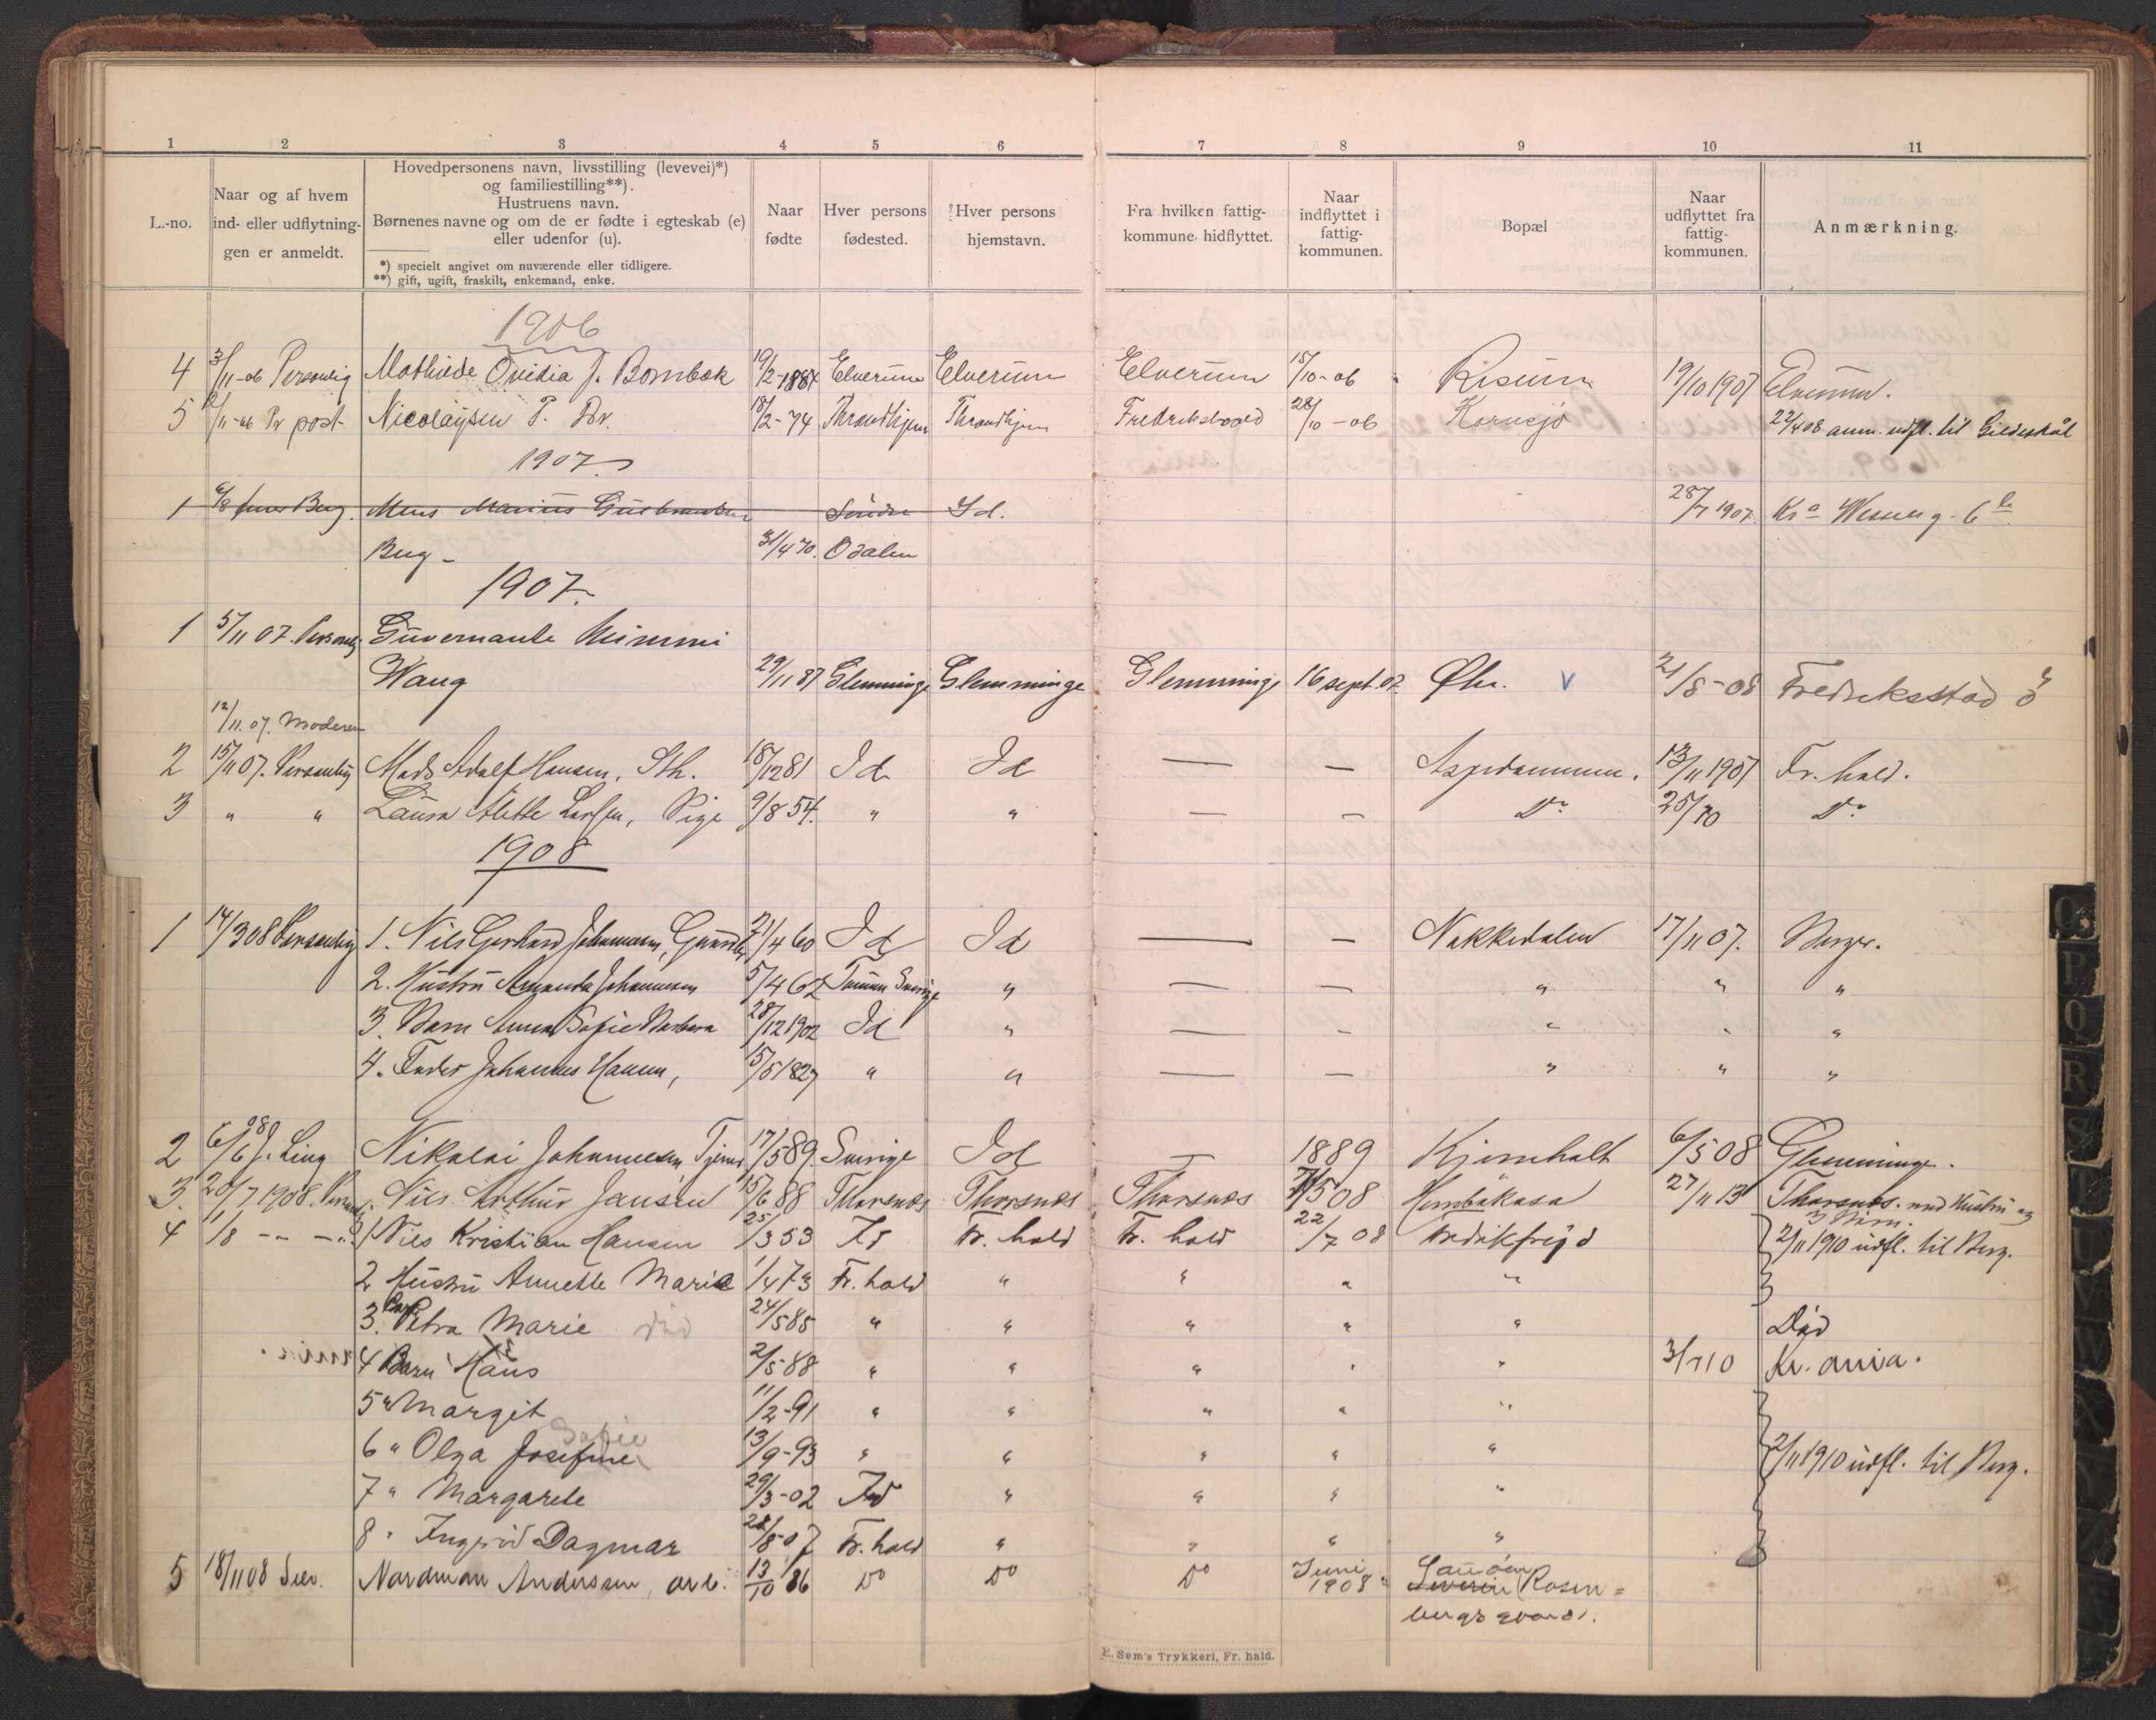 1 2 3 4 5 6 7 8 9 10 11
L.-no.
Naar og af hvem
ind- eller udflytnin-
gen er anmeldt.
Hovedpersonens navn, livsstilling (levevei)*)
og familiestilling**).
Hustruens navn.
Børnenes navne og om de er fødte i egteskab (e)
eller udenfor (u).
*) specielt angivet om nuværende eller tidligere.
**) gift, ugift, fraskilt, enkemand, enke.
Naar
fødte
Hver persons
fødested.
Hver persons
hjemstavn.
Fra hvilken fattig-
kommune hidflyttet.
Naar
indflyttet i
fattig-
kommunen.
Bopæl
Naar
udflyttet fra
fattig-
kommunen.
Anmærkning.
1906
4 3/11-06 Personlig Mathilde Ovidia J. Bombak 19/2-1884 Elverum Elverum Elverum 15/10-06 Risum 19/10 1907 Elverum.
5 /11-06 Pr post Nicolaysen P. Dr. 18/2-74 Throndhjem Throndhjem Fredrikshald 28/10-06 Kornsjø 22/4 08 anm. udfl. til Gildeskål
1907
1 6/8 Berg. Mens Marius Søndre Id. 28/7 1907 Kr a
Berg 31/4 70. Odalen
1907.
1 5/11 07. Personlig Guvernante Mimmi
Wang 29/11 87 Glemminge Glemminge Glemminge 16 sept. 07 Øber. V 21/8-08 Fredriksstad
12/11.07. Moderen
2 15/11 07. Personlig Mads Adolf Hansen, Sth. 18/12 81 Id Id — — Aspedammen. 13/11 1907 Fr. hald.
3 " " Laura Alette Larsen, Pige 9/8 54. " " — — Do 25/10 Do
1908
1 14/3 08 Personlig 1. Nils Gerhard Johannesen, 21/4 60 Id Id — — Nakkedalen 17/11 07. Berger.
2. Hustru Amanda Johannesen 5/4 62 Tanum Sverige " — — " " "
3. Barn Anna Sofie Barbara 28/12 1902 Id " — — " " "
4. Fader Johannes Hansen, 15/5 1827 " " — — " " "
2 6/6 08 J. Ling Nikolai Johannesen Tjener 17/5 89. Sverige Id — 1889 Kjirnhalt 6/5 08 Glemminge.
3. 20/7 1908. Personlig Nils Arthur Jansen 15/6 88 Thorsnæs Thorsnæs Thorsnæs 7/5 08 Hembåkasa 27/11 13 Thorsnæs. med Hustru og
3 Børn.
4 11/8 - " - 1 Nils Kristian Hansen 25/3 53 Id Fr. hald Fr. hald 22/7 08 Fredikfryd 2/11 1910 udfl. til Berg.
2 Hustru Annette Marie 1/4 73 Fr. hald " " " "
3. Barn Petra Marie død 24/5 85 " " " " " Død
4 Barn Hans 2/5-88 " " " " " 3/7 10 Kr.ania.
5 " Margit 11/2-91 " " " " "
6 " Olga Josefine Sofie 13/9-93 " " " " " 2/11 1910 udfl. til Berg.
7 " Margarete 29/3-02 Id " " " "
8 " Ingrid Dagmar 28/8-07 Fr. hald " " " "
5 18/11 08 Selv. Nordman Anderssen, arb. 13/10 86 Do Do Do Juni 1908 Sauøen Severin Rosen=
bergs gaard.
E. Sem's Trykkeri, Fr. hald.
P
Q
R
S
U
V
W
X
Y
Z